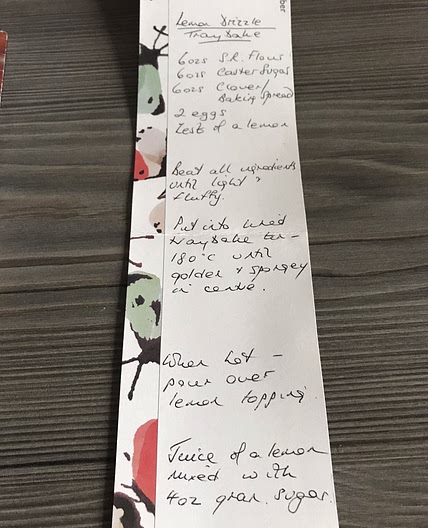 ber
Lemon Drizzle
Traybake
6ozs S.R. Flour
6ozs Caster Sugar
6ozs Clover/
Baking Spread
2 eggs
Zest of a lemon
Beat all ingredients
until light &
fluffy.
Put into lined
traybake tin -
180°C until
golden & spongey
in centre.
When hot -
pour over
lemon topping.
Juice of a lemon
mixed with
4oz gran. sugar.